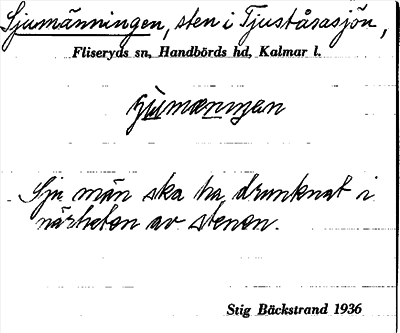 Sjumänningen, sten i Tjuståsasjön,
Fliseryds sn, Handbörds hd, Kalmar l.
Sju män ska ha drunknat i
närheten av stenen.
Stig Bäckstrand 1936